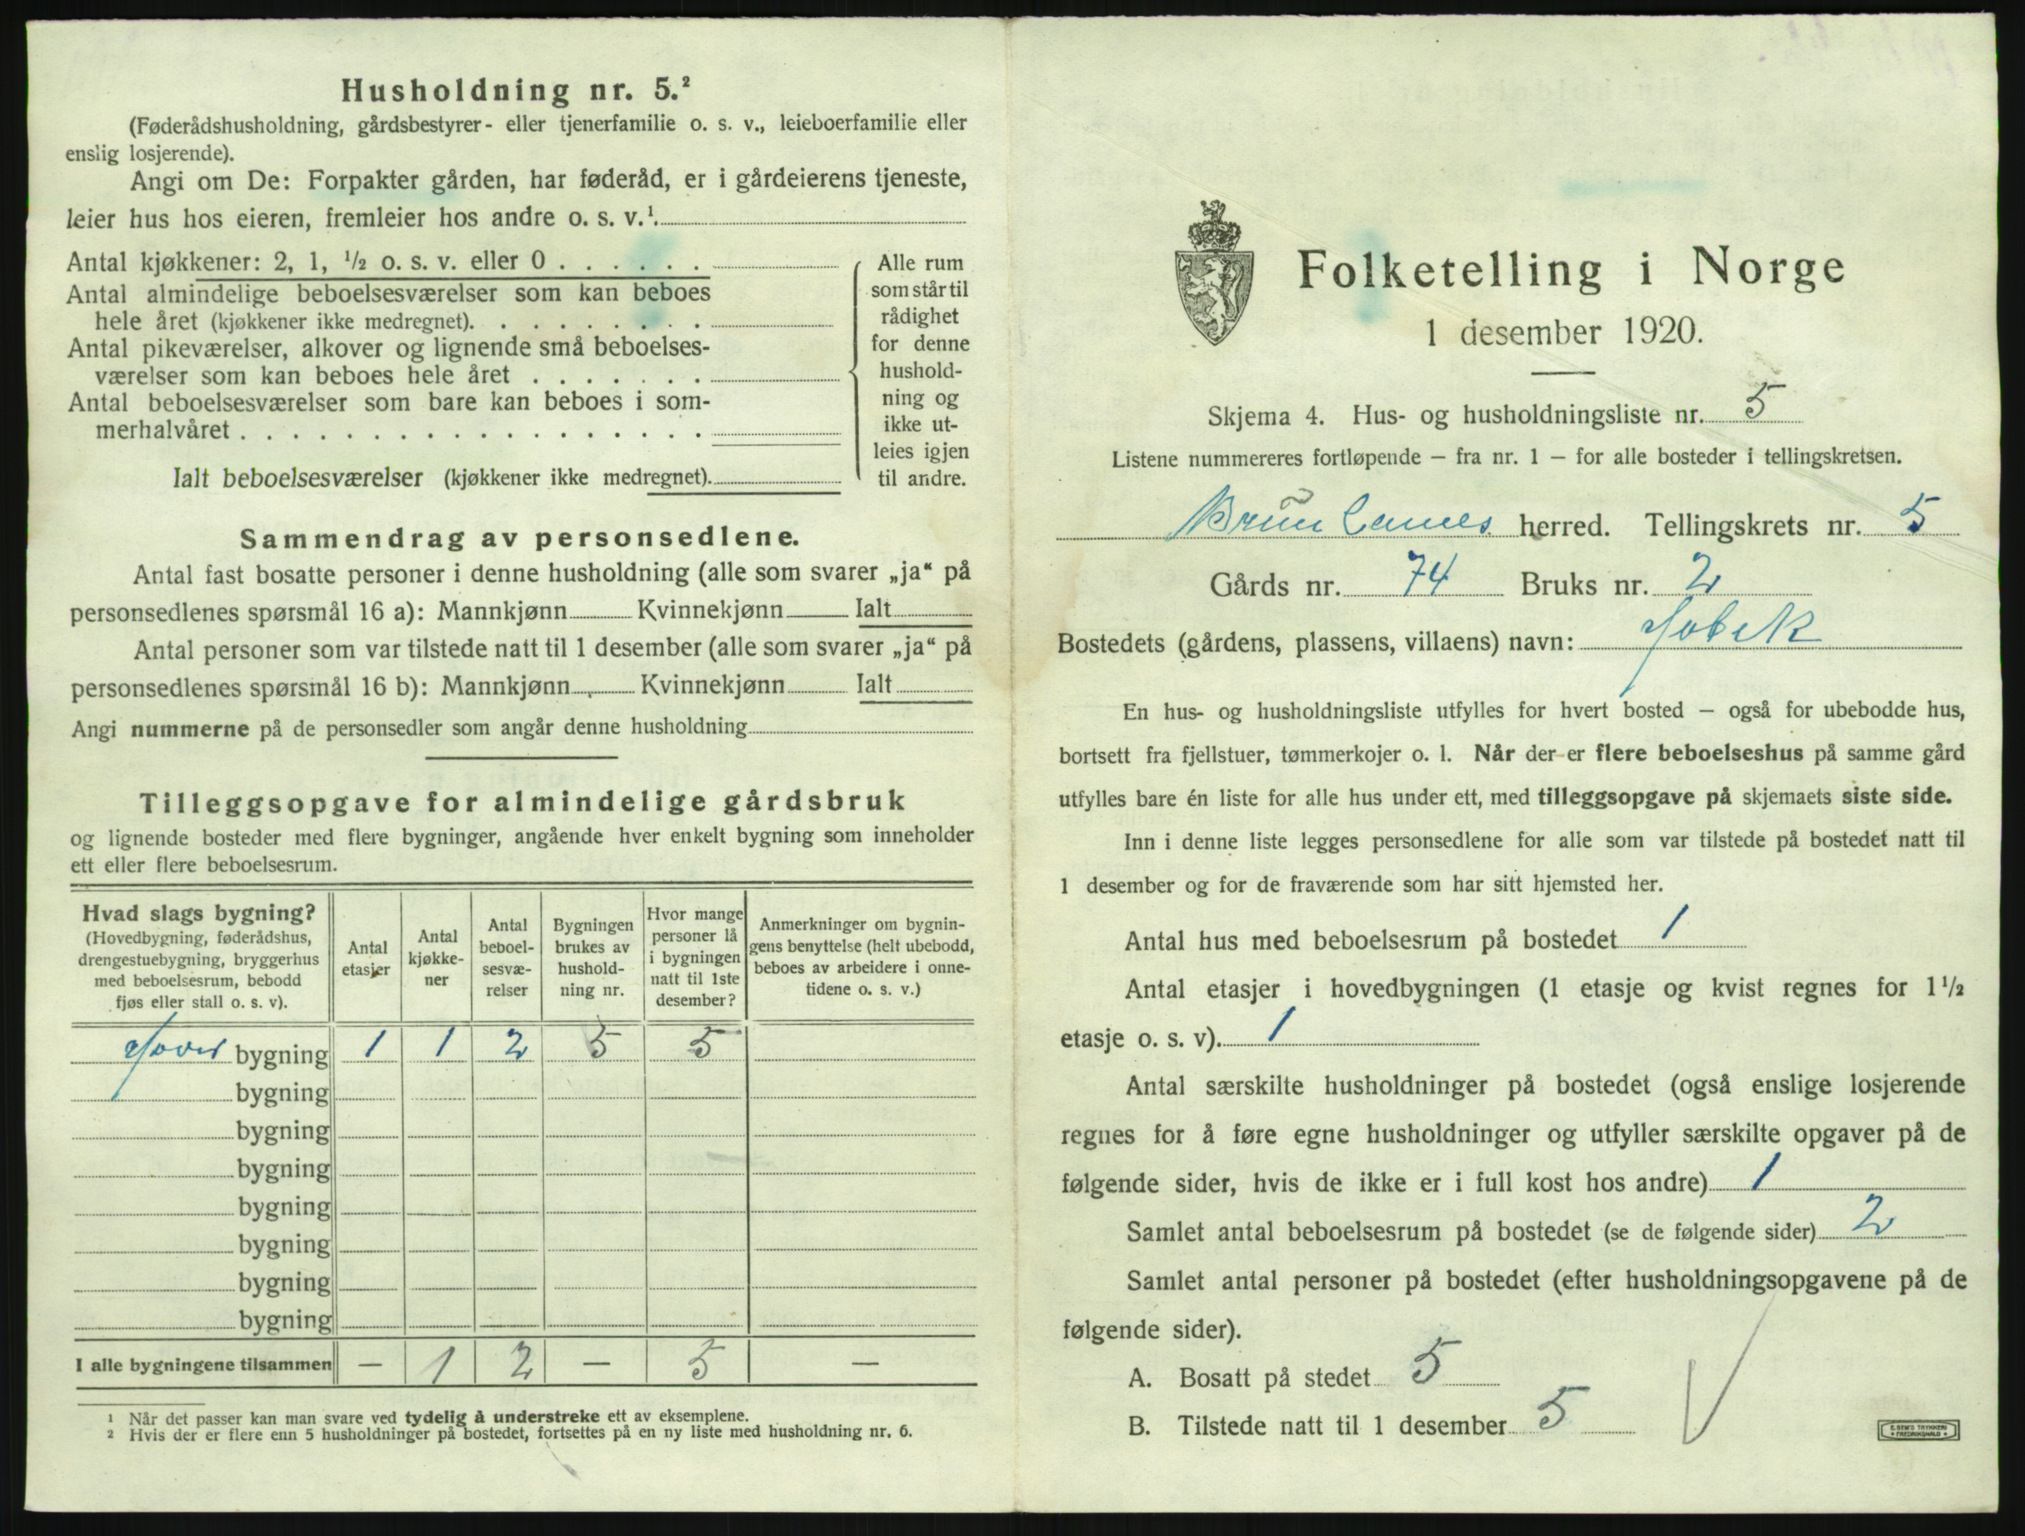 Husholdning nr. 5.²
(Føderådshusholdning, gårdsbestyrer- eller tjenerfamilie o. s. v., leieboerfamilie eller
enslig losjerende).
Angi om De: Forpakter gården, har føderåd, er i gårdeierens tjeneste,
leier hus hos eieren, fremleier hos andre o. s. v.¹
Antal kjøkkener: 2, 1, ½ o. s. v. eller 0
Antal almindelige beboelsesværelser som kan beboes
hele året (kjøkkener ikke medregnet).
Antal pikeværelser, alkover og lignende små beboelses-
værelser som kan beboes hele året
Antal beboelsesværelser som bare kan beboes i som-
merhalvåret
Ialt beboelsesværelser (kjøkkener ikke medregnet).
Alle rum
som står til
rådighet
for denne
hushold-
ning og
ikke ut-
leies igjen
til andre.
Sammendrag av personsedlene.
Antal fast bosatte personer i denne husholdning (alle som svarer „ja“ på
personsedlenes spørsmål 16 a): Mannkjønn Kvinnekjønn Ialt
Antal personer som var tilstede natt til 1 desember (alle som svarer „ja“ på
personsedlenes spørsmål 16 b): Mannkjønn Kvinnekjønn Ialt
Angi nummerne på de personsedler som angår denne husholdning
Tilleggsopgave for almindelige gårdsbruk
og lignende bosteder med flere bygninger, angående hver enkelt bygning som inneholder
ett eller flere beboelsesrum.
Hvad slags bygning?
(Hovedbygning, føderådshus,
drengestuebygning, bryggerhus
med beboelsesrum, bebodd
fjøs eller stall o. s. v).
Antal
etasjer
Antal
kjøkke-
ner
Antal
beboel-
sesvæ-
relser
Bygningen
brukes av
hushold-
ning nr.
Hvor mange
personer lå
i bygningen
natt til 1ste
desember?
Anmerkninger om bygnin-
gens benyttelse (helt ubebodd,
beboes av arbeidere i onne-
tidene o. s. v.)
bygning 1 1 2 5 5
bygning
bygning
bygning
bygning
bygning
bygning
bygning
I alle bygningene tilsammen — 1 2 — 5 —
¹ Når det passer kan man svare ved tydelig å understreke ett av eksemplene.
² Hvis der er flere enn 5 husholdninger på bostedet, fortsettes på en ny liste med husholdning nr. 6.
Folketelling i Norge
1 desember 1920.
Skjema 4. Hus- og husholdningsliste nr. 5
Listene nummereres fortløpende — fra nr. 1 — for alle bosteder i tellingskretsen.
Brunlanes herred. Tellingskrets nr. 5
Gårds nr. 74 Bruks nr. 2
Bostedets (gårdens, plassens, villaens) navn:
En hus- og husholdningsliste utfylles for hvert bosted — også for ubebodde hus,
bortsett fra fjellstuer, tømmerkojer o. l. Når der er flere beboelseshus på samme gård
utfylles bare én liste for alle hus under ett, med tilleggsopgave på skjemaets siste side.
Inn i denne liste legges personsedlene for alle som var tilstede på bostedet natt til
1 desember og for de fraværende som har sitt hjemsted her.
Antal hus med beboelsesrum på bostedet 1
Antal etasjer i hovedbygningen (1 etasje og kvist regnes for 1½
etasje o. s. v). 1
Antal særskilte husholdninger på bostedet (også enslige losjerende
regnes for å føre egne husholdninger og utfyller særskilte opgaver på de
følgende sider, hvis de ikke er i full kost hos andre) 1
Samlet antal beboelsesrum på bostedet (se de følgende sider) 2
Samlet antal personer på bostedet (efter husholdningsopgavene på de
følgende sider).
A. Bosatt på stedet 5
B. Tilstede natt til 1 desember 5